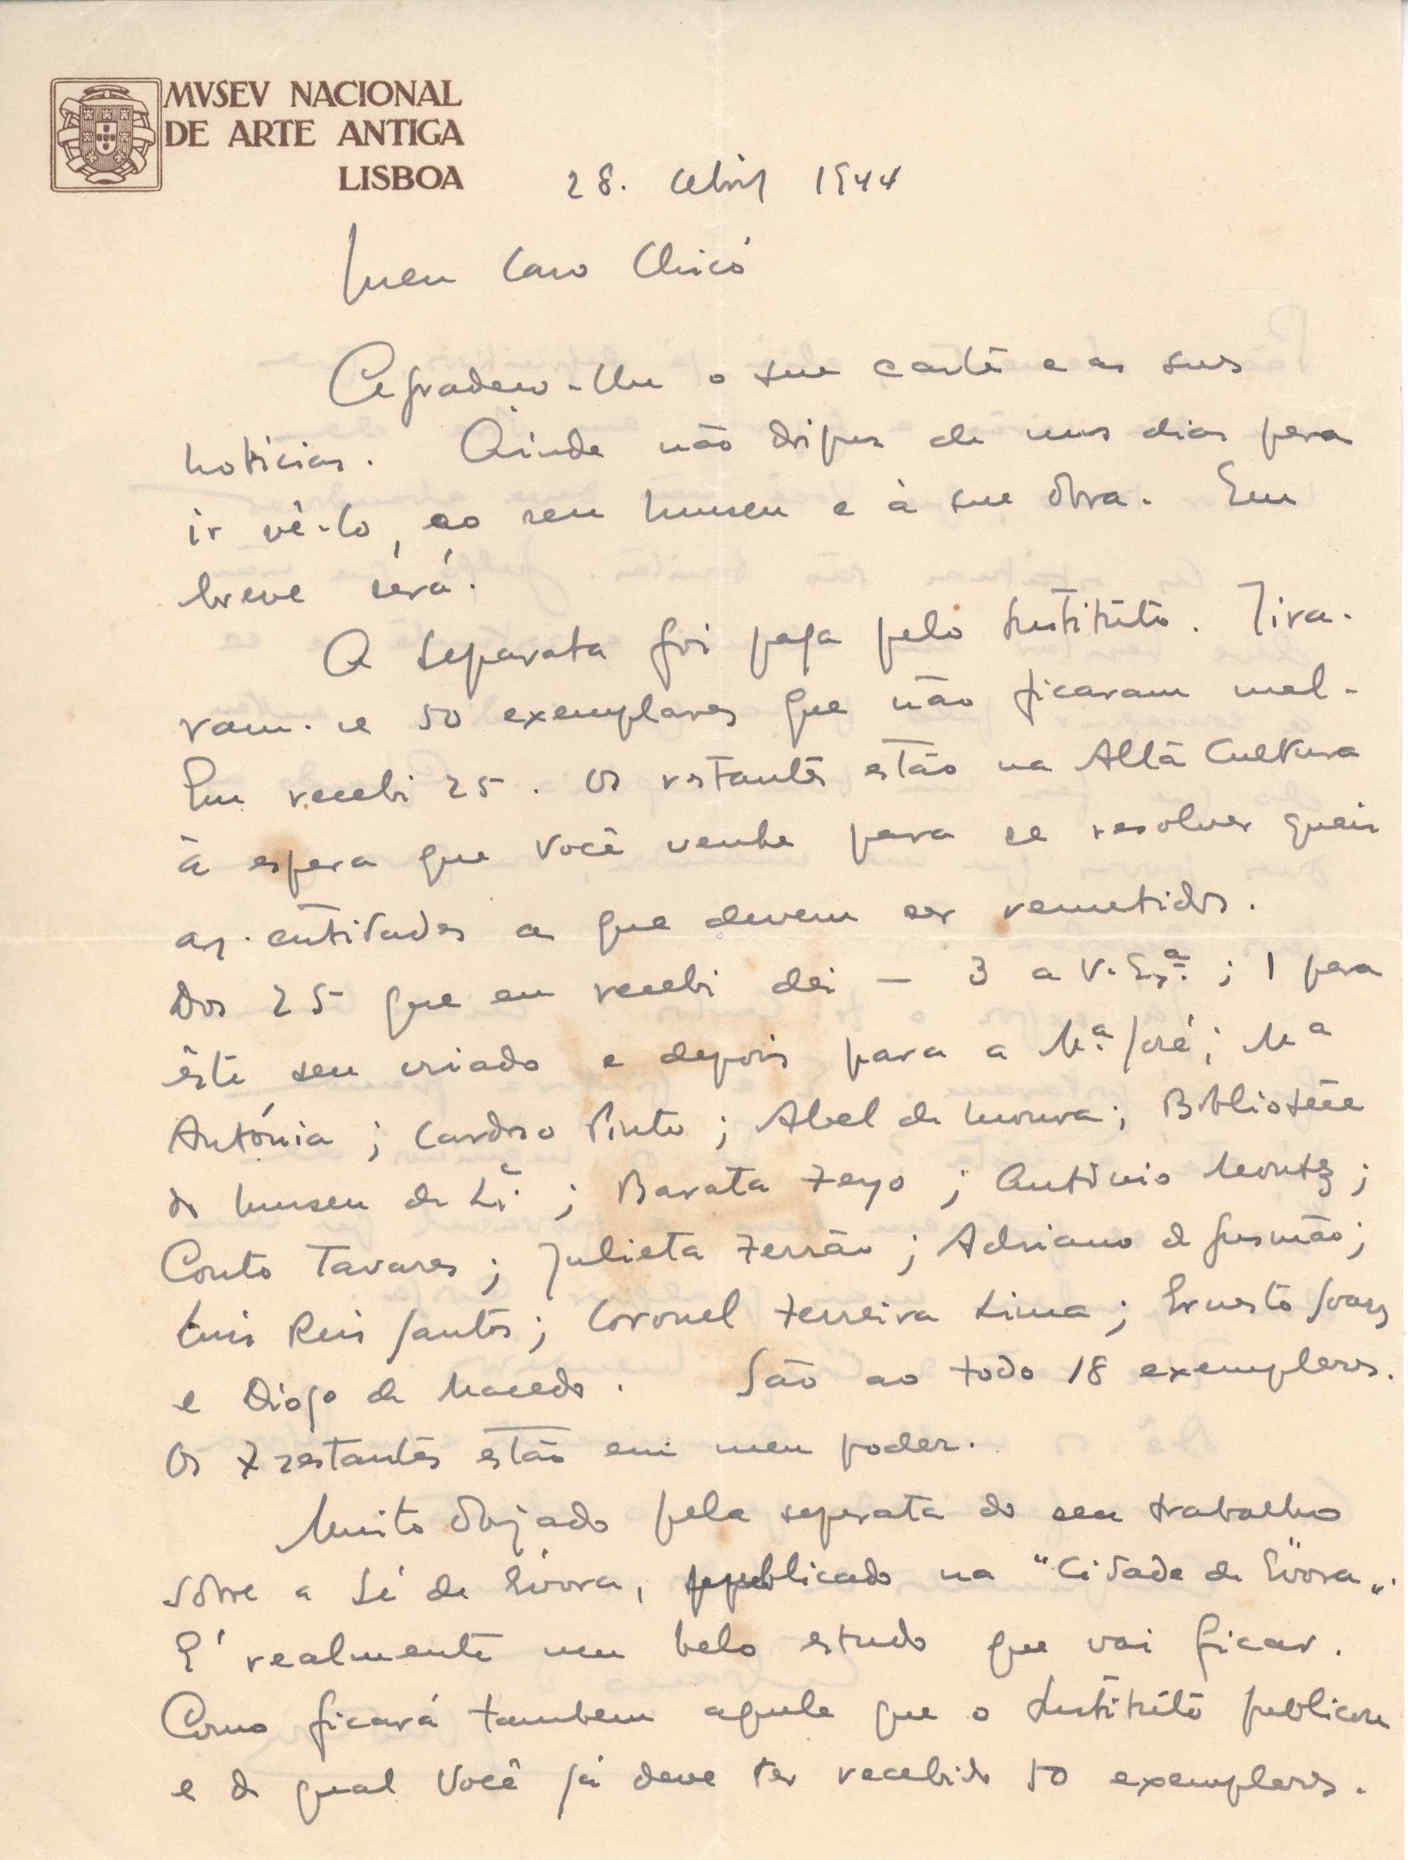 MVSEV NACIONAL
DE ARTE ANTIGA
LISBOA
28. Abril 1944
Meu Caro Chicó
Agradeço-lhe a sua carta e as suas
notícias. Ainda não dispus de uns dias para
ir vê-lo, ao seu museu e à sua obra. Em
breve será.
A separata foi paga pelo Instituto. Tira-
ram-se 50 exemplares que não ficaram mal.
Eu recebi 25. Os restantes estão na Alta Cultura
à espera que Você venha para se resolver quais
as entidades a que devem ser remetidos.
Dos 25 que eu recebi dei — 3 a V. Exª.; 1 para
êste seu criado e depois para a Mª José; Mª
Antónia; Cardoso Pinto; Abel de Moura; Biblioteca
do Museu de Lx.; Barata Feyo; António Montez;
Couto Tavares; Julieta Ferrão; Adriano de Gusmão;
Luis Reis Santos; Coronel Ferreira Lima; Ernesto Soares
e Diogo de Macedo. São ao todo 18 exemplares.
Os 7 restantes estão em meu poder.
Muito obrigado pela separata do seu trabalho
sôbre a Sé de Évora, publicado na "Cidade de Évora".
É realmente um belo estudo que vai ficar.
Como ficará tambem aquele que o Instituto publicou
e do qual Você já deve ter recebido 50 exemplares.